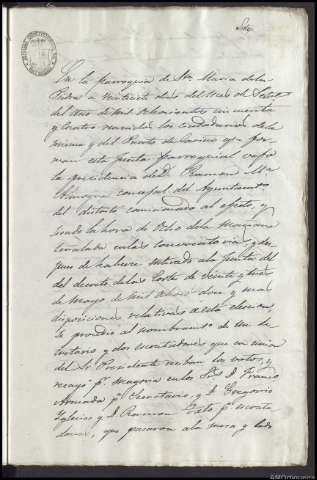 En la Parroquia de Sta Maria de la
Pedra a veintisiete dias del Mes de
del Año de mil Ochocientos cincuenta
y cuatro reunidos los ciudadanos de la
misma y del Puerto de Cariño q.e for-
man esta junta parroquial vajo
la presidencia de D. Ramon M.a
concejal del Ayuntamiento
del distrito comisionado al efecto, y
siendo la hora de Ocho de la Mañana
señalada en la convocatoria y des-
pues de haberse enterado a la junta del
del decreto de las Cortes de veinte y tres
de Mayo de mil Ochoc.s doce y mas
disposiciones relativas a esta eleccion,
se procedio al nombramiento de un Se-
cretario y dos escrutadores que en union
del Sr Presidente reciban los votos, y
recayó p.r mayoria en los Sres D. Franco
Armada p.a Secretario, y D. Gregorio
Yglesias y D. Ramon p.a escruta-
dores, que pasaron a la mesa y